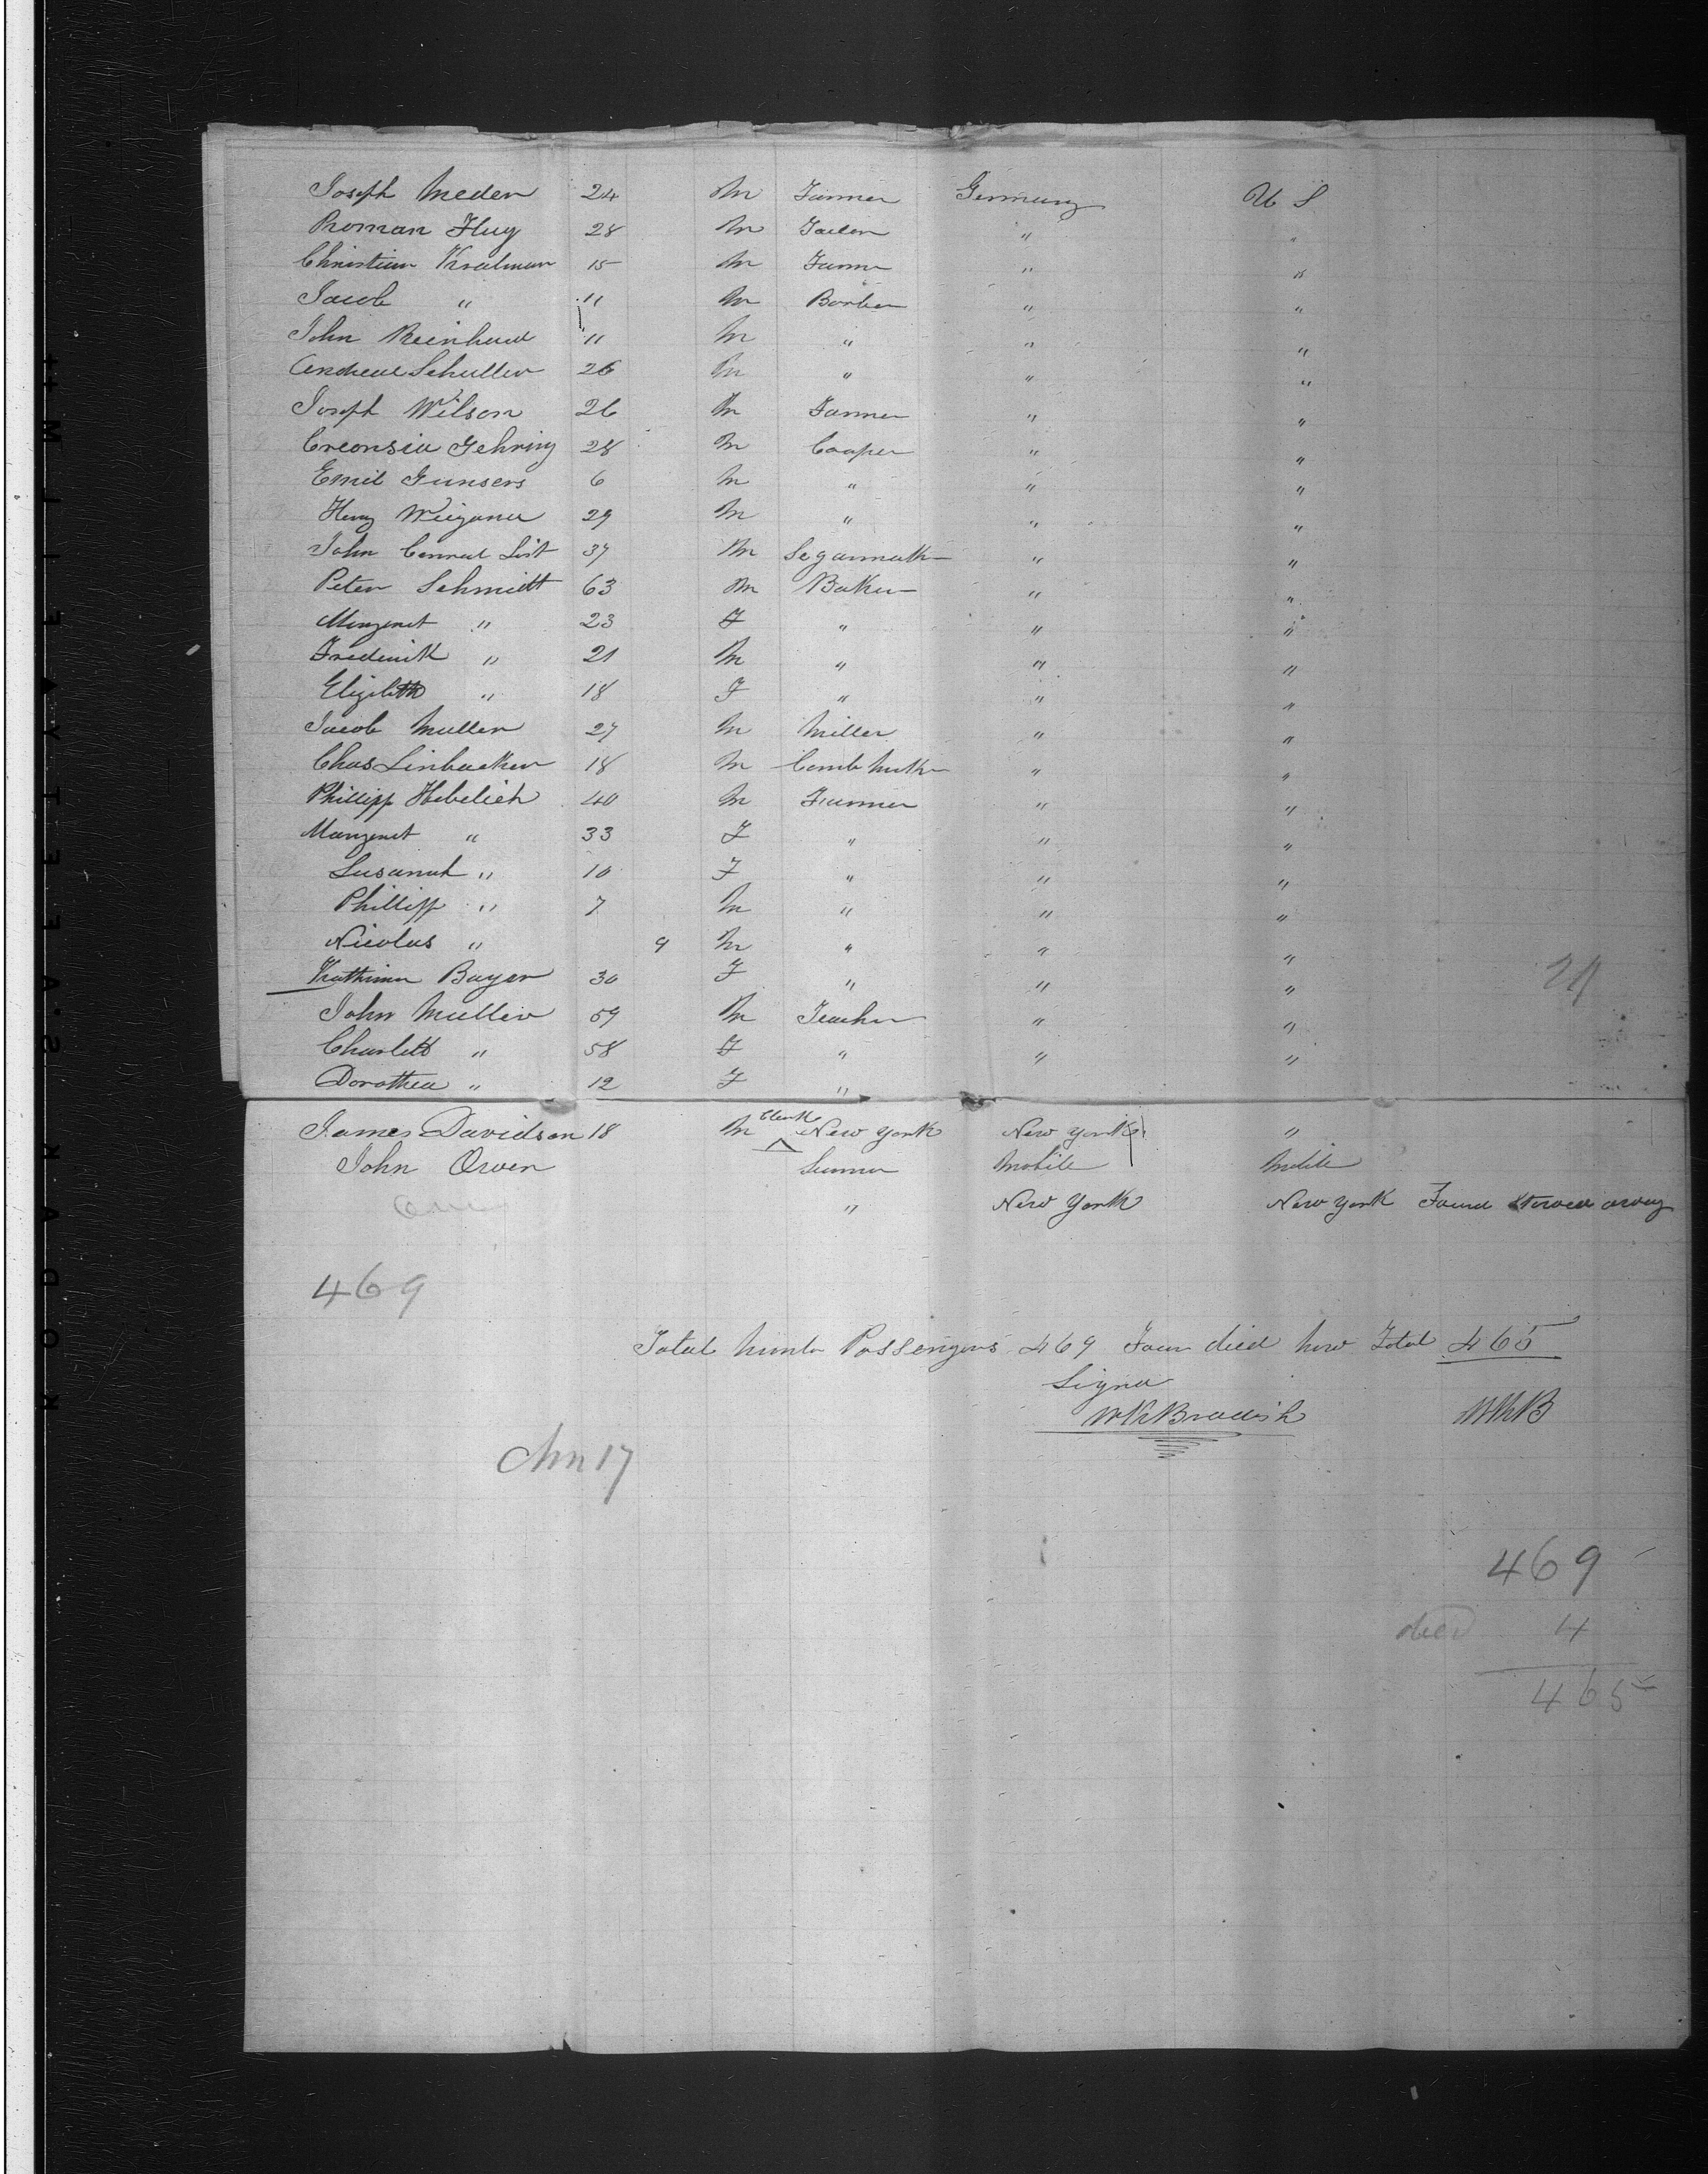 Joseph Meder 24 M Farmer Germany U S
Roman Hug 28 M Tailor " "
Christian Kralman 15 M Farmer " "
Jacob " 11 M Barber " "
John Reinhard 11 M " " "
Andreas Schuller 26 M " " "
Joseph Wilson 26 M Farmer " "
Creonsia Gehring 28 M Cooper " "
Emil Gunsers 6 M " " "
Henry Weigand 29 M " " "
John Conrad List 37 M Segarmaker " "
Peter Schmidt 63 M Baker " "
Margaret " 23 F " " "
Frederick " 21 M " " "
Elizabeth " 18 F " " "
Jacob Muller 27 M Miller " "
Chas Linbacker 18 M Comb Maker " "
Phillipp Hebelich 40 M Farmer " "
Margaret " 33 F " " "
Susanah " 10 F " " "
Phillipp " 7 M " " "
Nicolas " 9 M " " "
Kathrina Bayer 30 F " " "
24
John Muller 59 M Teacher " "
Charlett " 58 F " " "
Dorothea " 12 F "
James Davidson 18 M Clerk New York New York "
John Owen Mobile Mobile
" New York New York Found stowed away
469
Total Numbr Passengers 469 Four died now Total 465
Signed
WHBradish WHB
17
469
died 4
465